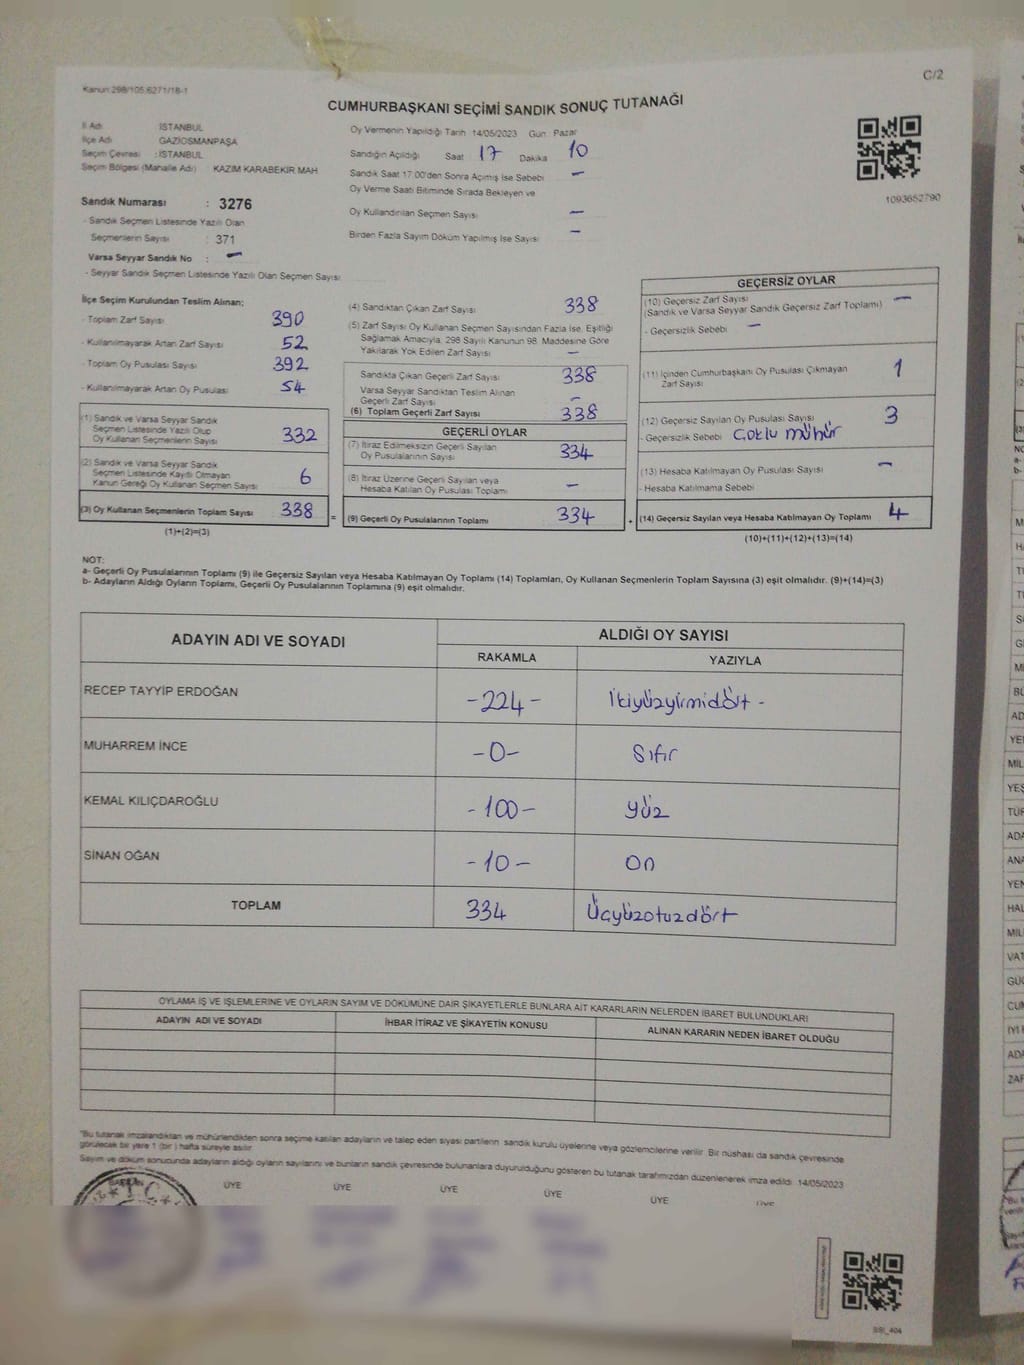 C/2
Kanun:298/105,6271/18-1
CUMHURBAŞKANI SEÇİMİ SANDIK SONUÇ TUTANAĞI
İl Adı İSTANBUL
İlçe Adı GAZİOSMANPAŞA
Seçim Çevresi : İSTANBUL
Seçim Bölgesi (Mahalle Adı) KAZIM KARABEKİR MAH
Sandık Numarası : 3276
- Sandık Seçmen Listesinde Yazılı Olan
Seçmenlerin Sayısı : 371
Varsa Seyyar Sandık No : -
- Seyyar Sandık Seçmen Listesinde Yazılı Olan Seçmen Sayısı:
Oy Vermenin Yapıldığı Tarih 14/05/2023 Gün: Pazar
Sandığın Açıldığı Saat 17 Dakika 10
Sandık Saat 17.00'den Sonra Açımış İse Sebebi -
Oy Verme Saati Bitiminde Sırada Bekleyen ve
Oy Kullandırılan Seçmen Sayısı -
Birden Fazla Sayım Döküm Yapılmış İse Sayısı -
1093652790
İlçe Seçim Kurulundan Teslim Alınan;
- Toplam Zarf Sayısı 390
- Kullanılmayarak Artan Zarf Sayısı 52
- Toplam Oy Pusulası Sayısı 392
- Kullanılmayarak Artan Oy Pusulası 54
(1) Sandık ve Varsa Seyyar Sandık
Seçmen Listesinde Yazılı Olup
Oy Kullanan Seçmenlerin Sayısı 332
(2) Sandık ve Varsa Seyyar Sandık
Seçmen Listesinde Kayıtlı Olmayan
Kanun Gereği Oy Kullanan Seçmen Sayısı 6
(3) Oy Kullanan Seçmenlerin Toplam Sayısı 338 =
(1)+(2)=(3)
(4) Sandıktan Çıkan Zarf Sayısı 338
(5) Zarf Sayısı Oy Kullanan Seçmen Sayısından Fazla İse, Eşitliği
Sağlamak Amacıyla, 298 Sayılı Kanunun 98. Maddesine Göre
Yakılarak Yok Edilen Zarf Sayısı -
Sandıkta Çıkan Geçerli Zarf Sayısı 338
Varsa Seyyar Sandıktan Teslim Alınan
Geçerli Zarf Sayısı -
(6) Toplam Geçerli Zarf Sayısı 338
GEÇERLİ OYLAR
(7) İtiraz Edilmeksizin Geçerli Sayılan
Oy Pusulalarının Sayısı 334
(8) İtiraz Üzerine Geçerli Sayılan veya
Hesaba Katılan Oy Pusulası Toplamı -
(9) Geçerli Oy Pusulalarının Toplamı 334 +
GEÇERSİZ OYLAR
(10) Geçersiz Zarf Sayısı -
(Sandık ve Varsa Seyyar Sandık Geçersiz Zarf Toplamı)
- Geçersizlik Sebebi -
(11) İçinden Cumhurbaşkanı Oy Pusulası Çıkmayan
Zarf Sayısı 1
(12) Geçersiz Sayılan Oy Pusulası Sayısı 3
- Geçersizlik Sebebi Çoklu mühür
(13) Hesaba Katılmayan Oy Pusulası Sayısı -
- Hesaba Katılmama Sebebi
(14) Geçersiz Sayılan veya Hesaba Katılmayan Oy Toplamı 4
(10)+(11)+(12)+(13)=(14)
NOT:
a- Geçerli Oy Pusulalarının Toplamı (9) ile Geçersiz Sayılan veya Hesaba Katılmayan Oy Toplamı (14) Toplamları, Oy Kullanan Seçmenlerin Toplam Sayısına (3) eşit olmalıdır. (9)+(14)=(3)
b- Adayların Aldığı Oyların Toplamı, Geçerli Oy Pusulalarının Toplamına (9) eşit olmalıdır.
ADAYIN ADI VE SOYADI ALDIĞI OY SAYISI
RAKAMLA YAZIYLA
RECEP TAYYİP ERDOĞAN -224- İkiyüzyirmidört -
MUHARREM İNCE -0- Sıfır
KEMAL KILIÇDAROĞLU -100- yüz
SİNAN OĞAN -10- on
TOPLAM 334 Üçyüzotuzdört
OYLAMA İŞ VE İŞLEMLERİNE VE OYLARIN SAYIM VE DÖKÜMÜNE DAİR ŞİKAYETLERLE BUNLARA AİT KARARLARIN NELERDEN İBARET BULUNDUKLARI
ADAYIN ADI VE SOYADI İHBAR İTİRAZ VE ŞİKAYETİN KONUSU ALINAN KARARIN NEDEN İBARET OLDUĞU
*Bu tutanak imzalandıktan ve mühürlendikten sonra seçime katılan adayların ve talep eden siyasi partilerin sandık kurulu üyelerine veya gözlemcilerine verilir. Bir nüshası da sandık çevresinde
görülecek bir yere 1 (bir) hafta süreyle asılır.
Sayım ve döküm sonucunda adayların aldığı oyların sayılarını ve bunların sandık çevresinde bulunanlara duyurulduğunu gösteren bu tutanak tarafımızdan düzenlenerek imza edildi. 14/05/2023
BAŞKAN ÜYE ÜYE ÜYE ÜYE ÜYE ÜYE
T.C.